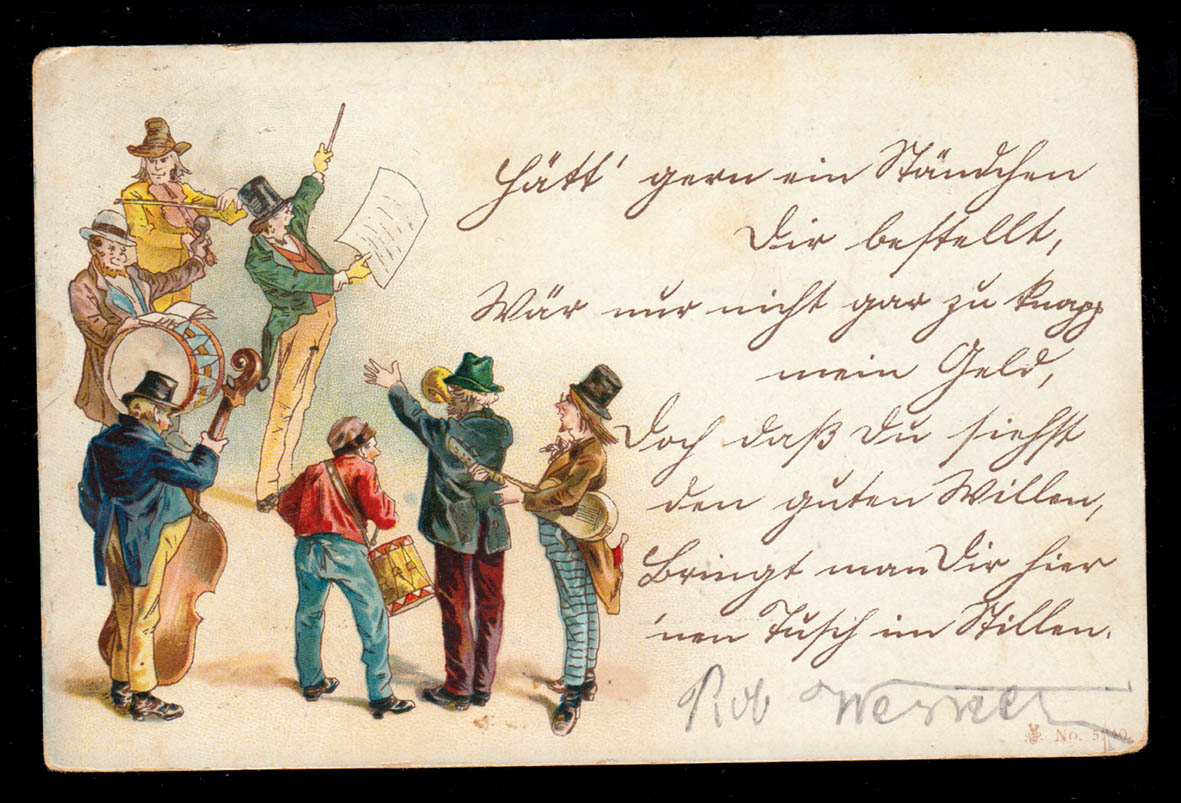 Hätt' gern ein Ständchen
Dir bestellt,
Wär nur nicht gar zu knapp
mein Geld,
Doch daß Du siehst
den guten Willen,
Bringt man Dir hier
'nen Tusch im Stillen.
Rob Werner
No.